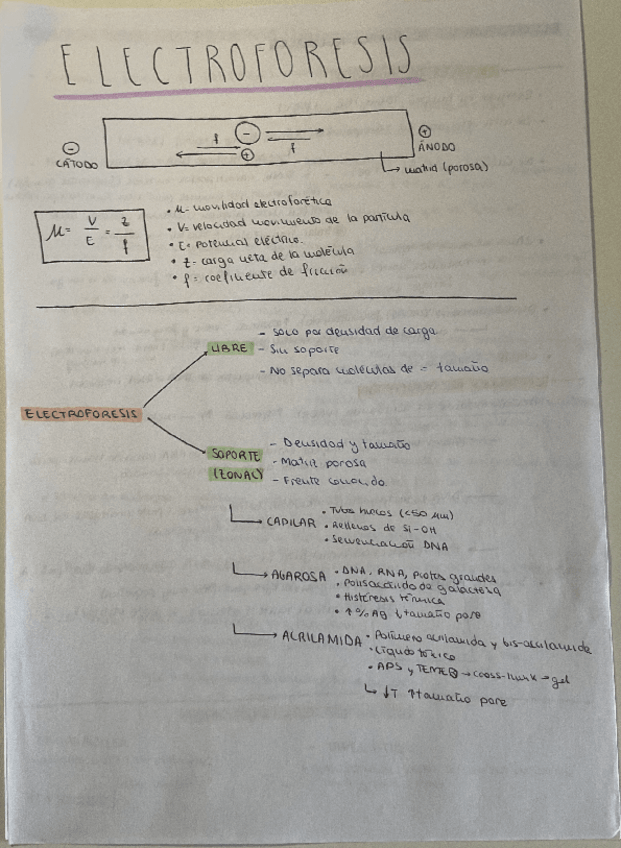 ELECTROFORESIS
⊖ CÁTODO
⊖
f
⊕
f
⊕ ÁNODO
→ matriz (porosa)
μ = V/E = z/f
• μ = movilidad electroforética
• V = velocidad movimiento de la partícula
• E = potencial eléctrico.
• z = carga neta de la molécula
• f = coeficiente de fricción
ELECTROFORESIS
LIBRE
- Solo por densidad de carga
- Sin soporte
- No separa moléculas de = tamaño
SOPORTE (ZONAL)
- Densidad y tamaño
- Matriz porosa
- Frente corrido
→ CAPILAR
• Tubos huecos (<50 μm)
• Rellenos de Si-OH
• Secuenciación DNA
→ AGAROSA
• DNA, RNA, protes grandes
• Polisacárido de galactosa
• Histéresis térmica
• ↑ % Ag ↓ tamaño poro
→ ACRILAMIDA
• Polímero acrilamida y bis-acrilamida
• Líquido tóxico
• APS y TEMED → cross-link → gel
↳ ↓T ↑ tamaño poro